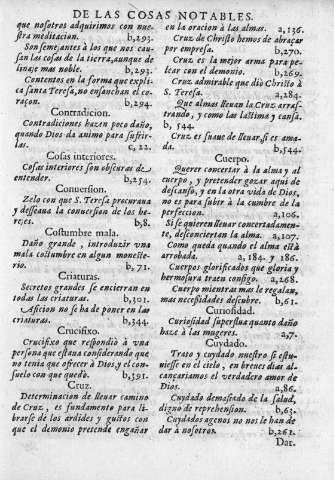 DE LAS COSAS NOTABLES.
que nosotros adquirimos con nue-
stra meditacion. b,293.
Son semejantes à los que nos cau-
san las cosas de la tierra, aunque de
linaje mas noble. b,293.
Contentos en la forma que expli-
ca santa Teresa, no ensanchan el co-
raçon. b,294.
Contradicion.
Contradiciones hazen poco daño,
quando Dios da animo para sufrir-
las. c,22.
Cosas interiores.
Cosas interiores son obscuras de
entender. b,254.
Conuersion.
Zelo con que S. Teresa procuraua
y desseaua la conuersion de los he-
rejes. b,8.
Costumbre mala.
Daño grande, introduzir vna
mala costumbre en algun moneste-
rio. b,71.
Criaturas.
Secretos grandes se encierran en
todas las criaturas. b,301.
Aficion no se ha de poner en las
criaturas. b,344.
Crucifixo.
Crucifixo que respondiò à vna
persona que estaua considerando que
no tenia que ofrecer à Dios, y el con-
suelo con que quedò. b,391.
Cruz.
Determinacion de lleuar camino
de Cruz, es fundamento para li-
brarse de los ardides y gustos con
que el demonio pretende engañar
en la oracion à las almas. a,136.
Cruz de Christo hemos de abraçar
por empresa. b,270.
Cruz es la mejor arma para pe-
lear con el demonio. b,269.
Cruz admirable que dio Christo à
S. Teresa. a,284.
Que almas lleuan la Cruz arras-
trando, y como las lastima y cansa.
b, 544.
Cruz es suaue de lleuar, si es ama-
da. b,544.
Cuerpo.
Querer concertar à la alma y al
cuerpo, y pretender gozar aqui de
descanso, y en la otra vida de Dios,
no es para subir à la cumbre de la
perfeccion. a,106.
Si se quieren lleuar concertadamen-
te, desconciertan la alma. a,107.
Como queda quando el alma està
arrobada. a, 184. y 186.
Cuerpos glorificados que gloria y
hermosura traen consigo. a,268.
Cuerpo mientras mas le regalan,
mas necesidades descubre. b,61.
Curiosidad.
Curiosidad superflua quanto daño
haze à las mugeres. a,7.
Cuydado.
Trato y cuydado nuestro si estu-
uiesse en el cielo, en breues dias al-
cançariamos el verdadero amor de
Dios. a,86.
Cuydado demasiado de la salud,
digno de reprehension. b,63.
Cuydados agenos no nos le han de
dar à nosotros. b,261.
Dar.